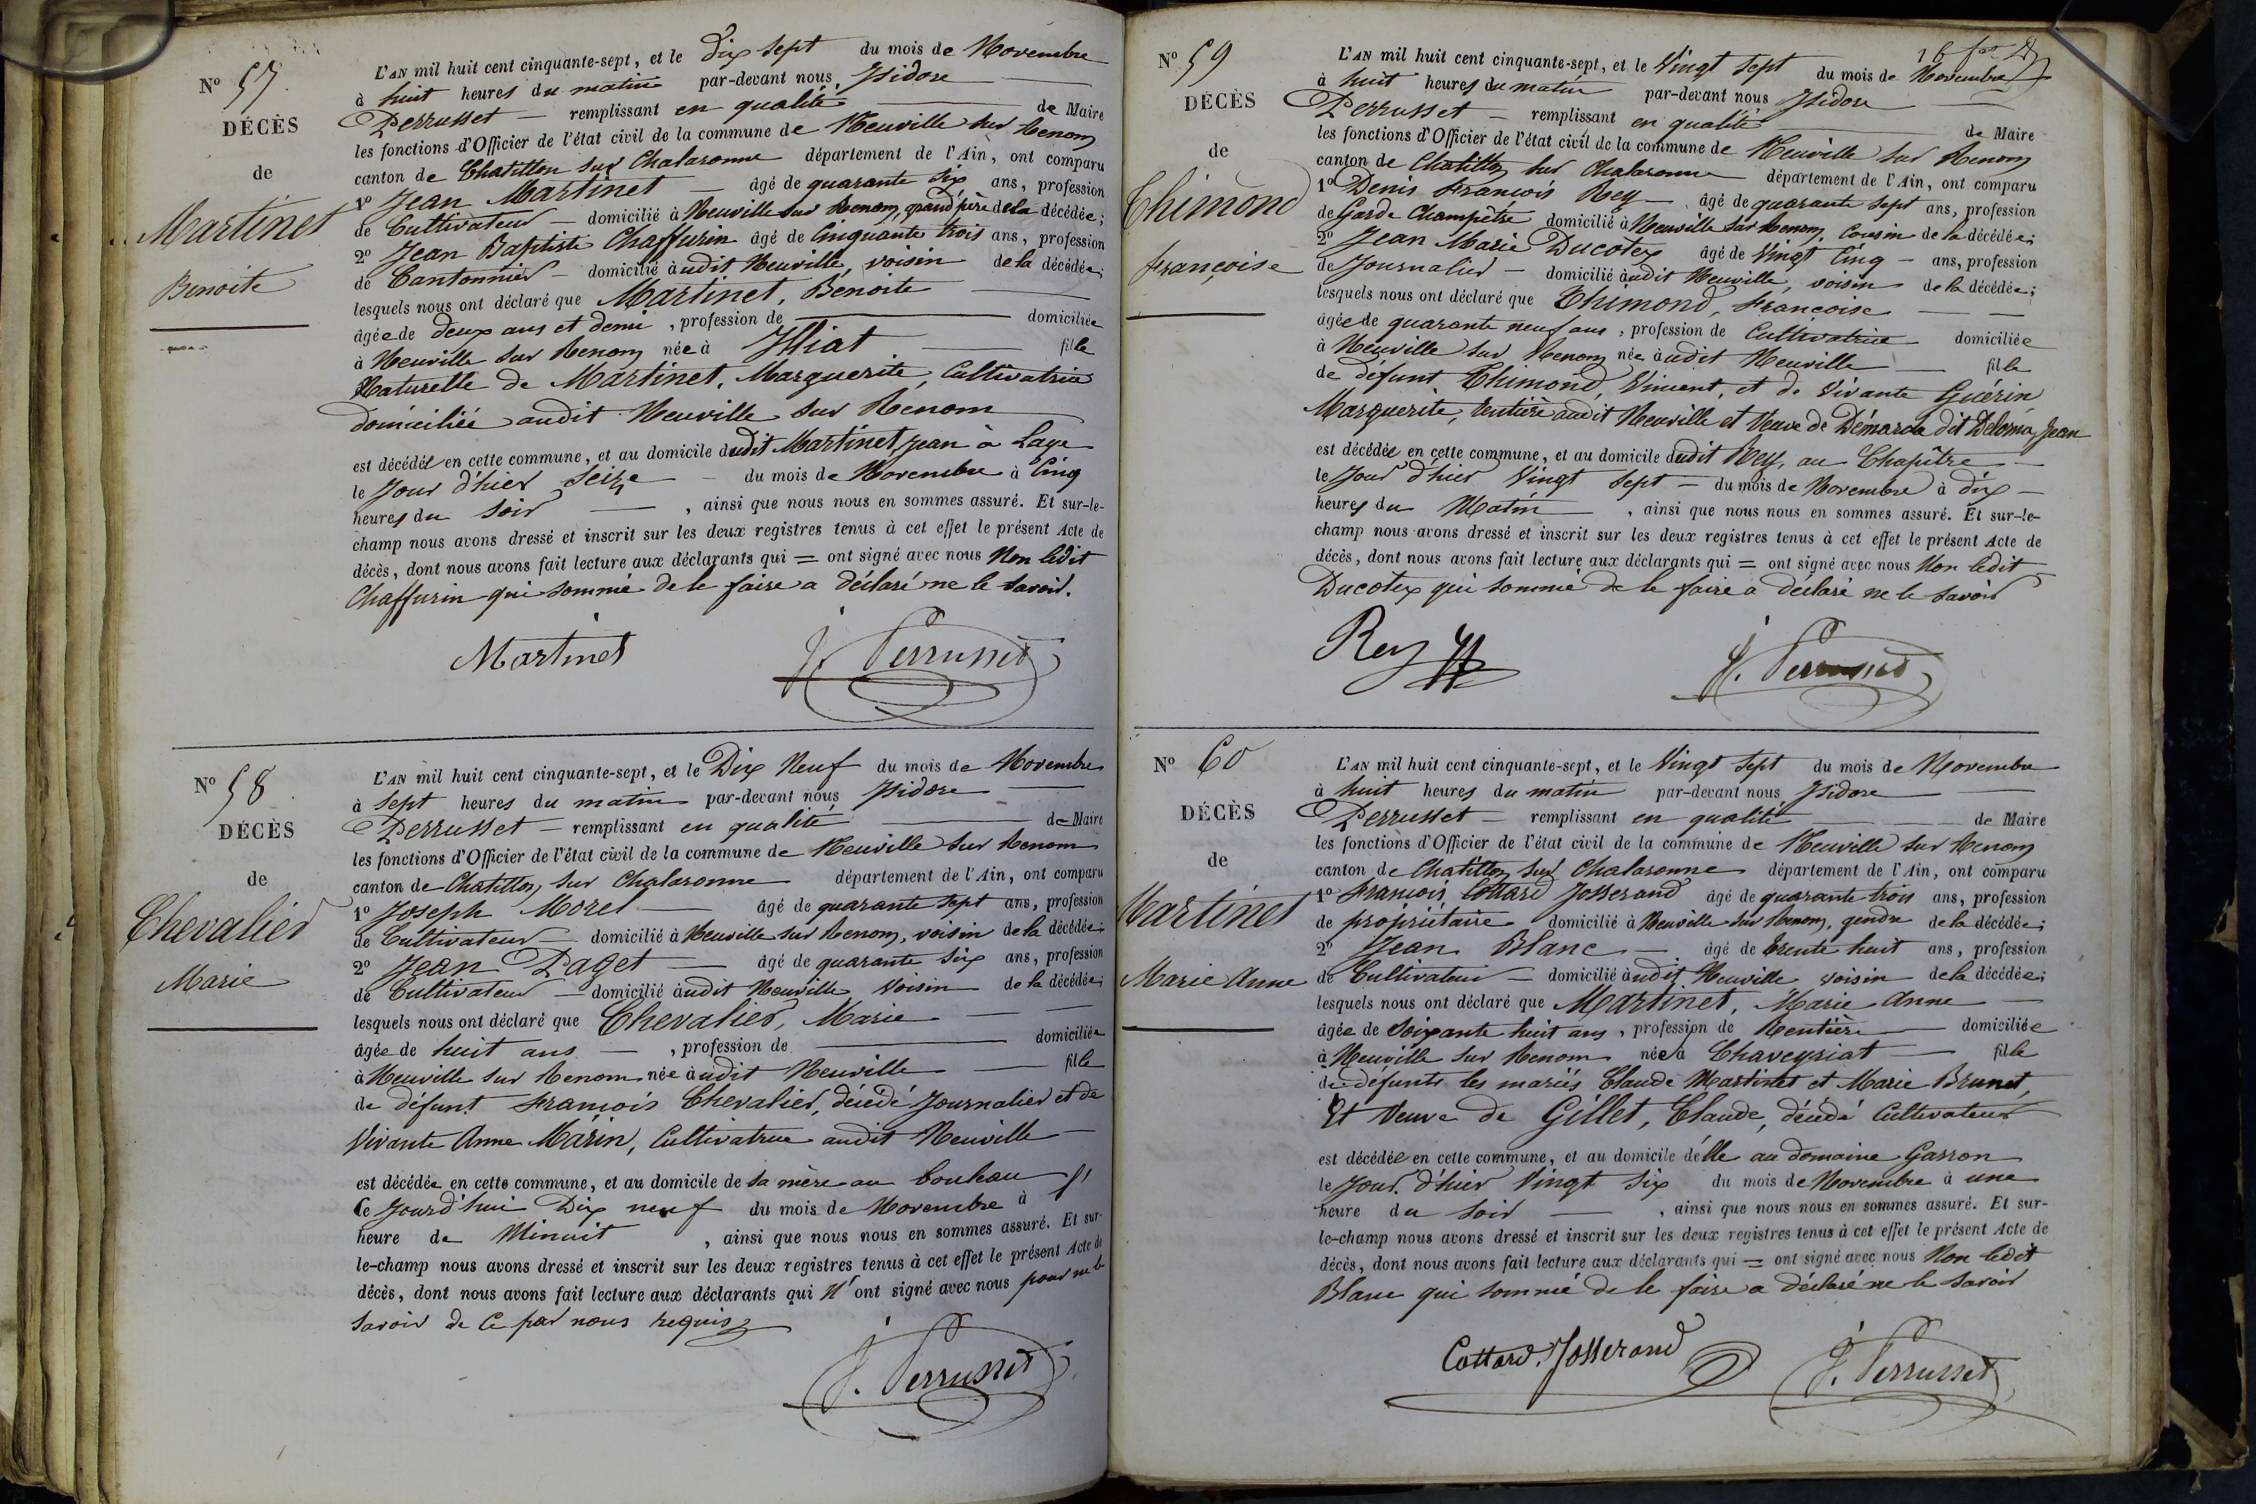 Nº 57
DÉCÈS
de
Martinet
Benoite
L'AN mil huit cent cinquante-sept, et le Dix sept du mois de Novembre
à huit heures du matin par-devant nous Isidore
Perrusset remplissant en qualité de Maire
les fonctions d'Officier de l'état civil de la commune de Neuville sur Renom
canton de Chatillon sur Chalaronne département de l'Ain, ont comparu
1º Jean Martinet âgé de quarante six ans, profession
de Cultivateur domicilié à Neuville sur Renom, grand'père de la décédée;
2º Jean Baptiste Chaffurin âgé de Cinquante trois ans, profession
de Cantonnier domicilié àudit Neuville, voisin de la décédée;
lesquels nous ont déclaré que Martinet, Benoite
âgée de deux ans et demi, profession de domiciliée
à Neuville sur Renom née à Illiat fille
Naturelle de Martinet, Marguerite, Cultivatrice
domiciliée audit Neuville sur Renom
est décédée en cette commune, et au domicile dudit Martinet Jean à Laye
le Jour d'hier Seize du mois de Novembre à Cinq
heures du Soir , ainsi que nous nous en sommes assuré. Et sur-le-
champ nous avons dressé et inscrit sur les deux registres tenus à cet effet le présent Acte de
décès, dont nous avons fait lecture aux déclarants qui = ont signé avec nous Non ledit
Chaffurin qui sommé de le faire a déclaré ne le savoir.
Martinet J. Perrusset
Nº 58
DÉCÈS
de
Chevalier
Marie
L'AN mil huit cent cinquante-sept, et le Dix Neuf du mois de Novembre
à Sept heures du matin par-devant nous Isidore
Perrusset remplissant en qualité de Maire
les fonctions d'Officier de l'état civil de la commune de Neuville sur Renom
canton de Chatillon sur Chalaronne département de l'Ain, ont comparu
1º Joseph Morel âgé de quarante sept ans, profession
de Cultivateur domicilié à Neuville sur Renom, voisin de la décédée;
2º Jean Paget âgé de quarante six ans, profession
de Cultivateur domicilié àudit Neuville voisin de la décédée;
lesquels nous ont déclaré que Chevalier, Marie
âgée de huit ans , profession de domiciliée
à Neuville sur Renom née àudit Neuville fille
de défunt François Chevalier, décédé Journalier et de
Vivante Anne Marin, Cultivatrice audit Neuville
est décédée en cette commune, et au domicile de sa mère au bouleau
Ce Jourd'hui Dix neuf du mois de Novembre à
heure de Minuit , ainsi que nous nous en sommes assuré. Et sur-
le-champ nous avons dressé et inscrit sur les deux registres tenus à cet effet le présent Acte de
décès, dont nous avons fait lecture aux déclarants qui N'ont signé avec nous pour ne le
Savoir de Ce par nous requis
J. Perrusset
16 fos
Nº 59
DÉCÈS
de
Thimond
Françoise
L'AN mil huit cent cinquante-sept, et le Vingt Sept du mois de Novembre
à huit heures du matin par-devant nous Isidore
Perrusset remplissant en qualité de Maire
les fonctions d'Officier de l'état civil de la commune de Neuville sur Renom
canton de Chatillon sur Chalaronne département de l'Ain, ont comparu
1º Denis François Rey âgé de quarante sept ans, profession
de Garde Champêtre domicilié à Neuville sur Renom, Cousin de la décédée;
2º Jean Marie Ducotex âgé de Vingt Cinq ans, profession
de Journalier domicilié àudit Neuville, voisin de la décédée;
lesquels nous ont déclaré que Thimond, Françoise
âgée de quarante neuf ans, profession de Cultivatrice domiciliée
à Neuville sur Renom née àudit Neuville fille
de défunt Thimond, Vincent, et de Vivante Guérin
Marguerite, rentière audit Neuville et Veuve de Démarca dit Deloma, Jean
est décédée en cette commune, et au domicile dudit Rey, au Chapitre
le Jour d'hier Vingt Sept du mois de Novembre à dix
heures du Matin , ainsi que nous nous en sommes assuré. Et sur-le-
champ nous avons dressé et inscrit sur les deux registres tenus à cet effet le présent Acte de
décès, dont nous avons fait lecture aux déclarants qui = ont signé avec nous Non ledit
Ducotex qui sommé de le faire a déclaré ne le savoir
Rey J. Perrusset
Nº 60
DÉCÈS
de
Martinet
Marie Anne
L'AN mil huit cent cinquante-sept, et le Vingt Sept du mois de Novembre
à huit heures du matin par-devant nous Isidore
Perrusset remplissant en qualité de Maire
les fonctions d'Officier de l'état civil de la commune de Neuville sur Renom
canton de Chatillon sur Chalaronne département de l'Ain, ont comparu
1º François Cottard Josserand âgé de quarante trois ans, profession
de propriétaire domicilié à Neuville sur Renom, gendre de la décédée;
2º Jean Blanc âgé de trente huit ans, profession
de Cultivateur domicilié àudit Neuville voisin de la décédée;
lesquels nous ont déclaré que Martinet, Marie Anne
âgée de Soixante huit ans, profession de Rentière domiciliée
à Neuville sur Renom née à Chaveyriat fille
de défunts les mariés Claude Martinet et Marie Brunet,
Et Veuve de Gillet, Claude, décédé Cultivateur
est décédée en cette commune, et au domicile d'elle au domaine Gasron
le Jour d'hier Vingt Six du mois de Novembre à une
heure du Soir , ainsi que nous nous en sommes assuré. Et sur-
le-champ nous avons dressé et inscrit sur les deux registres tenus à cet effet le présent Acte de
décès, dont nous avons fait lecture aux déclarants qui = ont signé avec nous Non ledit
Blanc qui sommé de le faire a déclaré ne le savoir
Cottard. Josserand J. Perrusset